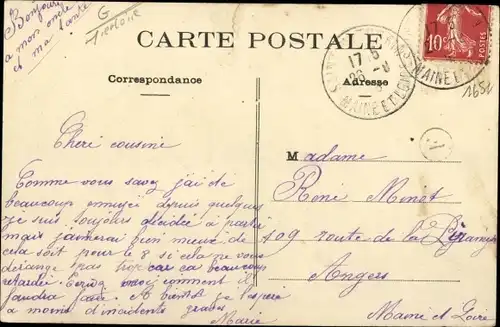 Bonjour
a mon oncle
et ma tante
G
CARTE POSTALE
Correspondance
Adresse
10c
17
26
MAINE ET LOIRE
MAINE ET
1651
Cheri cousine
Comme vous savez j'ai de
beaucoup ennuyé depuis quelques
je suis toujours décidée à partir
mais j'aimerai bien mieux de
cela soit pour le 8 si cela ne vous
dérange pas trop car ca beaucoup
retardée comment il
faudra faire. A bientôt je l'espère
a moins d'incidents graves
Marie
Madame
René Menot
109 route de la
Angers
Maine et Loire